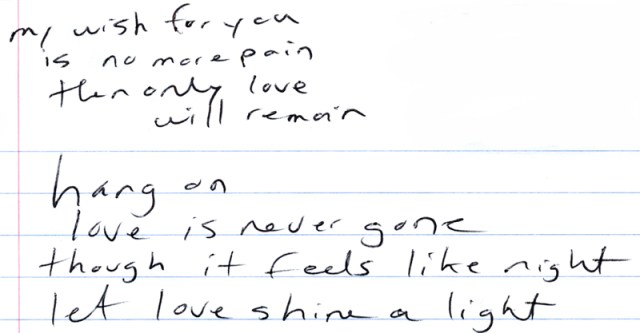 my wish for you
is no more pain
then only love
will remain
hang on
love is never gone
though it feels like night
let love shine a light